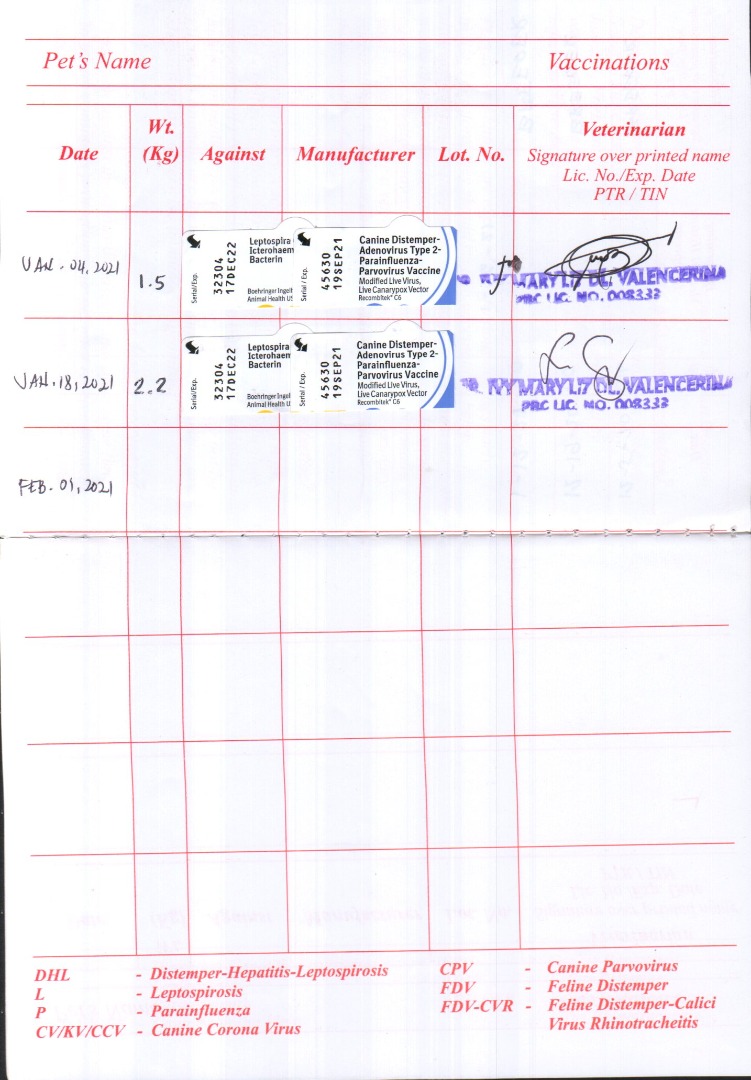 Pet's Name Vaccinations
Date Wt. (Kg) Against Manufacturer Lot. No. Veterinarian
Signature over printed name
Lic. No./Exp. Date
PTR / TIN
JAN. 04, 2021 1.5
Serial/Exp.
32304
17DEC22
Leptospira
Icterohaem
Bacterin
Boehringer Ingel
Animal Health US
Serial / Exp.
45630
19SEP21
Canine Distemper-
Adenovirus Type 2-
Parainfluenza-
Parvovirus Vaccine
Modified Live Virus,
Live Canarypox Vector
Recombitek® C6
MARYLIZ DL. VALENCERINA
PRC LIC. NO. 008333
JAN. 18, 2021 2.2
Serial/Exp.
32304
17DEC22
Leptospira
Icterohaem
Bacterin
Boehringer Ingel
Animal Health U
Serial / Exp.
45630
19SEP21
Canine Distemper-
Adenovirus Type 2-
Parainfluenza-
Parvovirus Vaccine
Modified Live Virus,
Live Canarypox Vector
Recombitek® C6
IVY MARYLIZ DL. VALENCERINA
PRC LIC. NO. 008333
FEB. 01, 2021
DHL - Distemper-Hepatitis-Leptospirosis
L - Leptospirosis
P - Parainfluenza
CV/KV/CCV - Canine Corona Virus
CPV - Canine Parvovirus
FDV - Feline Distemper
FDV-CVR - Feline Distemper-Calici
Virus Rhinotracheitis